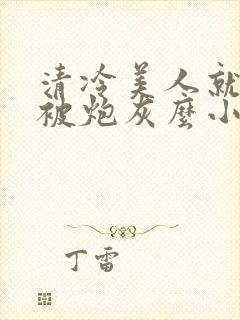 清冷美人就
被炮灰麼小
丁雷